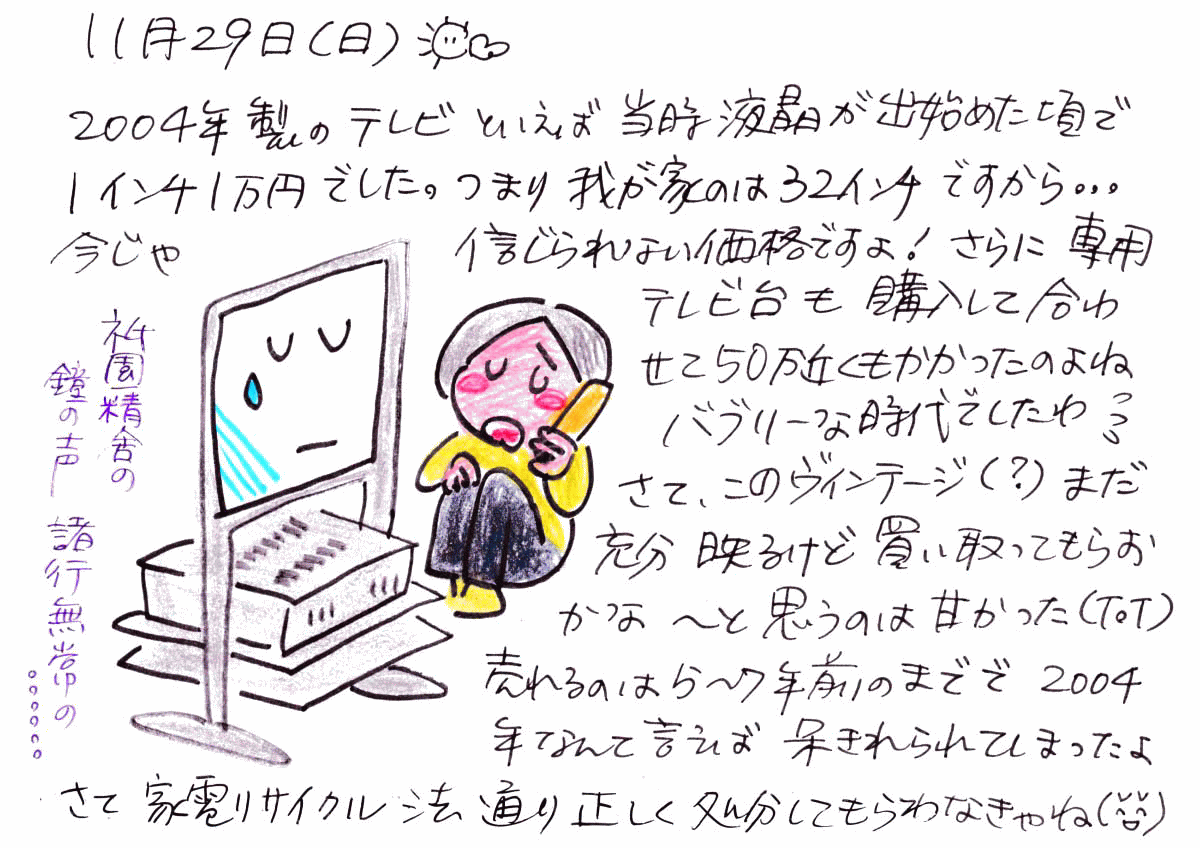 11月29日(日)
2004年製のテレビといえば当時液晶が出始めた頃で
1インチ1万円でした。つまり我が家のは32インチですから...
今じゃ 信じられない価格ですよ!さらに専用
テレビ台も購入して合わ
せて50万近くもかかったのよね
バブリーな時代でしたわ
さて、このヴィンテージ(?)まだ
充分映るけど買い取ってもらお
かな〜と思うのは甘かった(ToT)
売れるのは5〜7年前のまでで2004
年なんて言えば呆きれられてしまったよ
さて家電リサイクル法通り正しく処分してもらわなきゃね
祇園精舎の
鐘の声 諸行無常の
。。。。。。